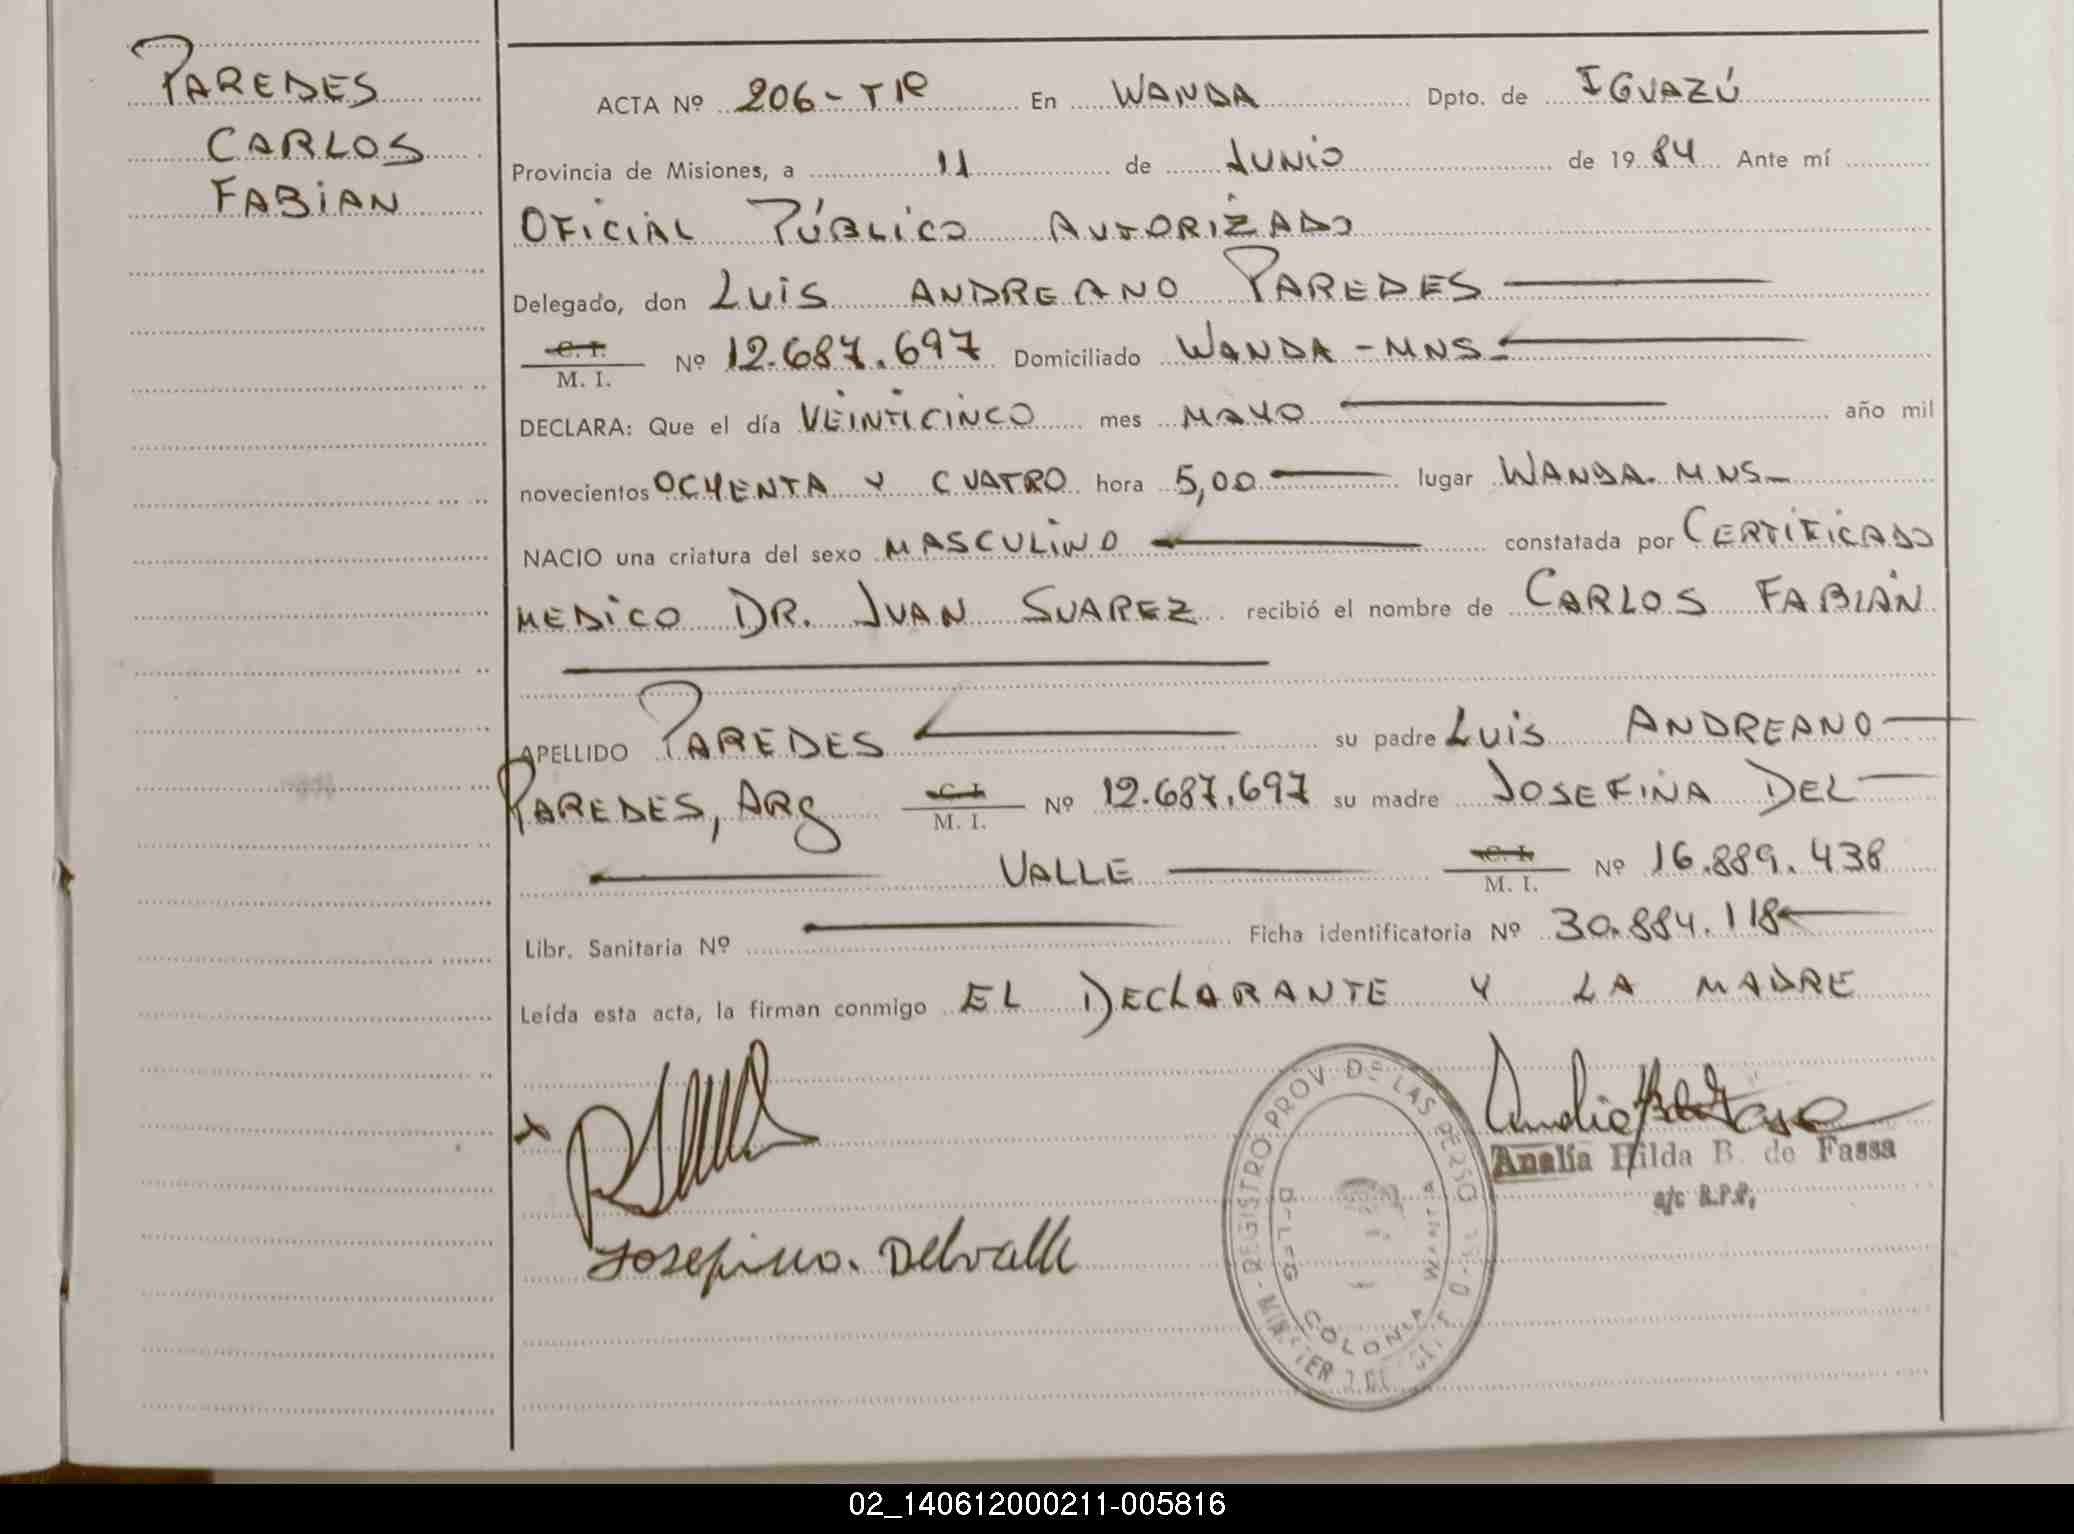 PAREDES
CARLOS
FABIAN
ACTA Nº 206-TR En WANDA Dpto. de IGUAZÚ
Provincia de Misiones, a 11 de JUNIO de 1984 Ante mí
OFICIAL PÚBLICO AUTORIZADO
Delegado, don LUIS ANDREANO PAREDES
C. I.
M. I. Nº 12.687.697 Domiciliado WANDA-MNS-
DECLARA: Que el día VEINTICINCO mes MAYO año mil
novecientos OCHENTA Y CUATRO hora 5,00 lugar WANDA. MNS-
NACIO una criatura del sexo MASCULINO constatada por CERTIFICADO
MEDICO DR. JUAN SUAREZ recibió el nombre de CARLOS FABIÁN
APELLIDO PAREDES su padre LUIS ANDREANO
PAREDES, ARG C. I. M. I. Nº 12.687.697 su madre JOSEFINA DEL
VALLE C. I. M. I. Nº 16.889.438
Libr. Sanitaria Nº Ficha identificatoria Nº 30.884.118
Leída esta acta, la firman conmigo EL DECLARANTE Y LA MADRE
Josefina. Delvalle
REGISTRO PROV. DE LAS PERSO
COLONIA WANDA
Analía Hilda B. de Fassa
a/c R.P.P.
02_140612000211-005816